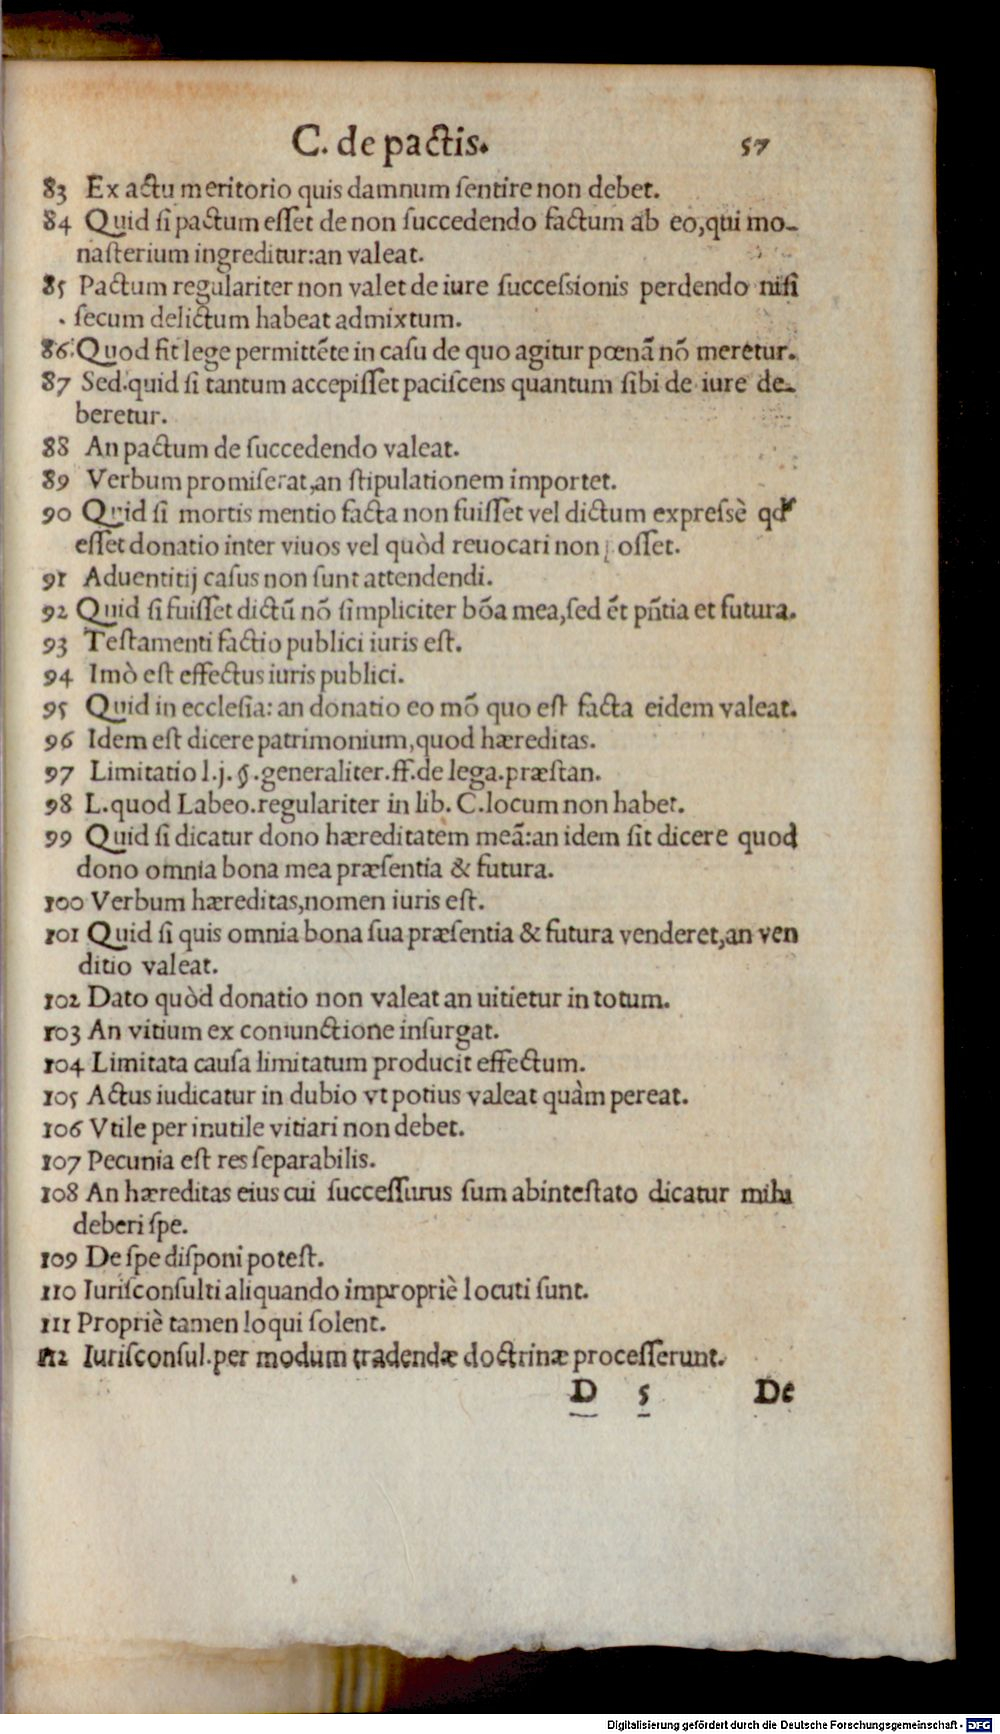 C. de pactis. 57
83 Ex actu meritorio quis damnum ſentire non debet.
84 Quid ſi pactum eſſet de non ſuccedendo factum ab eo,qui mo-
naſterium ingreditur:an valeat.
85 Pactum regulariter non valet de iure ſucceſsionis perdendo niſi
ſecum delictum habeat admixtum.
86 Quod fit lege permittẽte in caſu de quo agitur pœnã nõ meretur.
87 Sed quid ſi tantum accepiſſet paciſcens quantum ſibi de iure de-
beretur.
88 An pactum de ſuccedendo valeat.
89 Verbum promiſerat,an ſtipulationem importet.
90 Quid ſi mortis mentio facta non fuiſſet vel dictum expreſsè qd
eſſet donatio inter viuos vel quòd reuocari non poſſet.
91 Aduentitij caſus non ſunt attendendi.
92 Quid ſi fuiſſet dictũ nõ ſimpliciter bõa mea,ſed ẽt pñtia et futura.
93 Teſtamenti factio publici iuris eſt.
94 Imò eſt effectus iuris publici.
95 Quid in eccleſia: an donatio eo mõ quo eſt facta eidem valeat.
96 Idem eſt dicere patrimonium,quod hæreditas.
97 Limitatio l.j. §.generaliter.ff.de lega.præſtan.
98 L.quod Labeo.regulariter in lib. C.locum non habet.
99 Quid ſi dicatur dono hæreditatem meã:an idem ſit dicere quod
dono omnia bona mea præſentia & futura.
100 Verbum hæreditas,nomen iuris eſt.
101 Quid ſi quis omnia bona ſua præſentia & futura venderet,an ven
ditio valeat.
102 Dato quòd donatio non valeat an uitietur in totum.
103 An vitium ex coniunctione inſurgat.
104 Limitata cauſa limitatum producit effectum.
105 Actus iudicatur in dubio vt potius valeat quàm pereat.
106 Vtile per inutile vitiari non debet.
107 Pecunia eſt res ſeparabilis.
108 An hæreditas eius cui ſucceſſurus ſum abinteſtato dicatur mihi
deberi ſpe.
109 De ſpe diſponi poteſt.
110 Iuriſconſulti aliquando impropriè locuti ſunt.
111 Propriè tamen loqui ſolent.
112 Iuriſconſul.per modum tradendæ doctrinæ proceſſerunt.
D 5 De
Digitalisierung gefördert durch die Deutsche Forschungsgemeinschaft - DFG